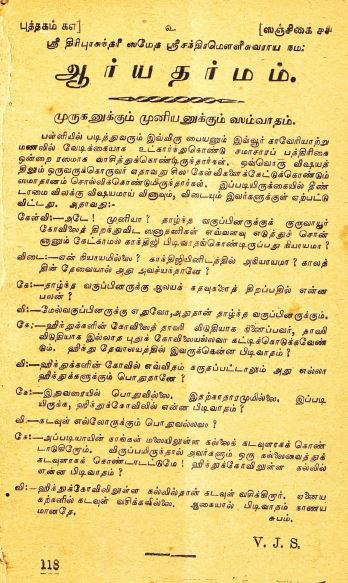 புத்தகம் கஎ] உ [ஸஞ்சிகை சச
ஸ்ரீ திரிபுரசுந்தரீ ஸமேத ஸ்ரீசந்திரமௌளீசுவராய நம:
ஆர்யதர்மம்.
முருகனுக்கும் முனியனுக்கும் ஸம்வாதம்.
பள்ளியில் படித்துவரும் இவ்விரு பையனும் இவ்வூர் காவேரியாற்று
மணலில் வேடிக்கையாக உட்கார்ந்துகொண்டு சமாசாரப் பத்திரிகை
ஒன்றை ரஸமாக வாசித்துக்கொண்டிருந்தார்கள். ஒவ்வொரு விஷயத்
திலும் ஒருவருக்கொருவர் ஏதாவது சில கேள்விகளைக்கேட்டுக்கொண்டும்
ஸமாதானம் சொல்லிக்கொண்டுமிருந்தார்கள். இப்படியிருக்கையில் தீண்
டாமை விலக்கு விஷயமாய் வினாவும், விடையும் இவர்களுக்குள் ஏற்பட்டு
விட்டது. அதாவது:
கேள்வி:—அடே! முனியா? தாழ்ந்த வகுப்பினருக்குக் குருவாயூர்
கோவிலைத் திறந்துவிட ஸனாதனிகள் எவ்வளவு எடுத்துச் சொன்
னாலும் கேட்காமல் காந்திஜி பிடிவாதங்கொண்டிருப்பது நியாயமா?
விடை:—ஏன் நியாயமில்லை? காந்திஜியினிடத்தில் அநியாயமா? காலத்
தின் தேவையால் அது அவச்யந்தானே?
கே:—தாழ்ந்த வகுப்பினருக்கு ஆலயக் கதவுகளைத் திறப்பதில் என்ன
பலன்?
வி:—மேல்வகுப்பினருக்கு எதுவோ, அதுதான் தாழ்ந்த வகுப்பினருக்கும்.
கே:—ஹிந்துக்களின் கோவிலைத் தாஸி விடுதியாக நினைப்பவர், தாஸி
விடுதியாக இல்லாத புதுக் கோவிலையல்லவா கட்டிக்கொடுக்கவேண்
டும். ஹிந்து தேவாலயத்தில் இவருக்கென்ன பிடிவாதம்?
வி:—ஹிந்துக்களின் கோவில் எவ்விதம் கருதப்பட்டாலும் அது எல்லா
ஹிந்துக்களுக்கும் பொதுதானே?
கே:—இதுவரையில் பொதுவில்லை. இதற்காதாரமுமில்லை. இப்படி
யிருக்க, ஹிந்துக்கோவிலில் என்ன பிடிவாதம்?
வி:—கடவுள் எல்லோருக்கும் பொதுவல்லவா?
கே:—அப்படியாயின் நாங்கள் மலையிலுள்ள கல்லைக் கடவுளாகக் கொண்
டாடுகிறோம். விருப்பமிருந்தால் அவர்களும் ஒரு கல்லைவைத்துக்
கடவுளாகக் கொண்டாடட்டுமே! ஹிந்துக்கோவிலுள்ள கல்லில்
என்ன பிடிவாதம்?
வி:—ஹிந்துக்கோவிலிலுள்ள கல்லில்தான் கடவுள் வசிக்கிறார். ஏனைய
கற்களில் கடவுள் வசிக்கவில்லை. ஆகையால் பிடிவாதம் காணய
மானதே.
சுபம்.
V. J. S.
118